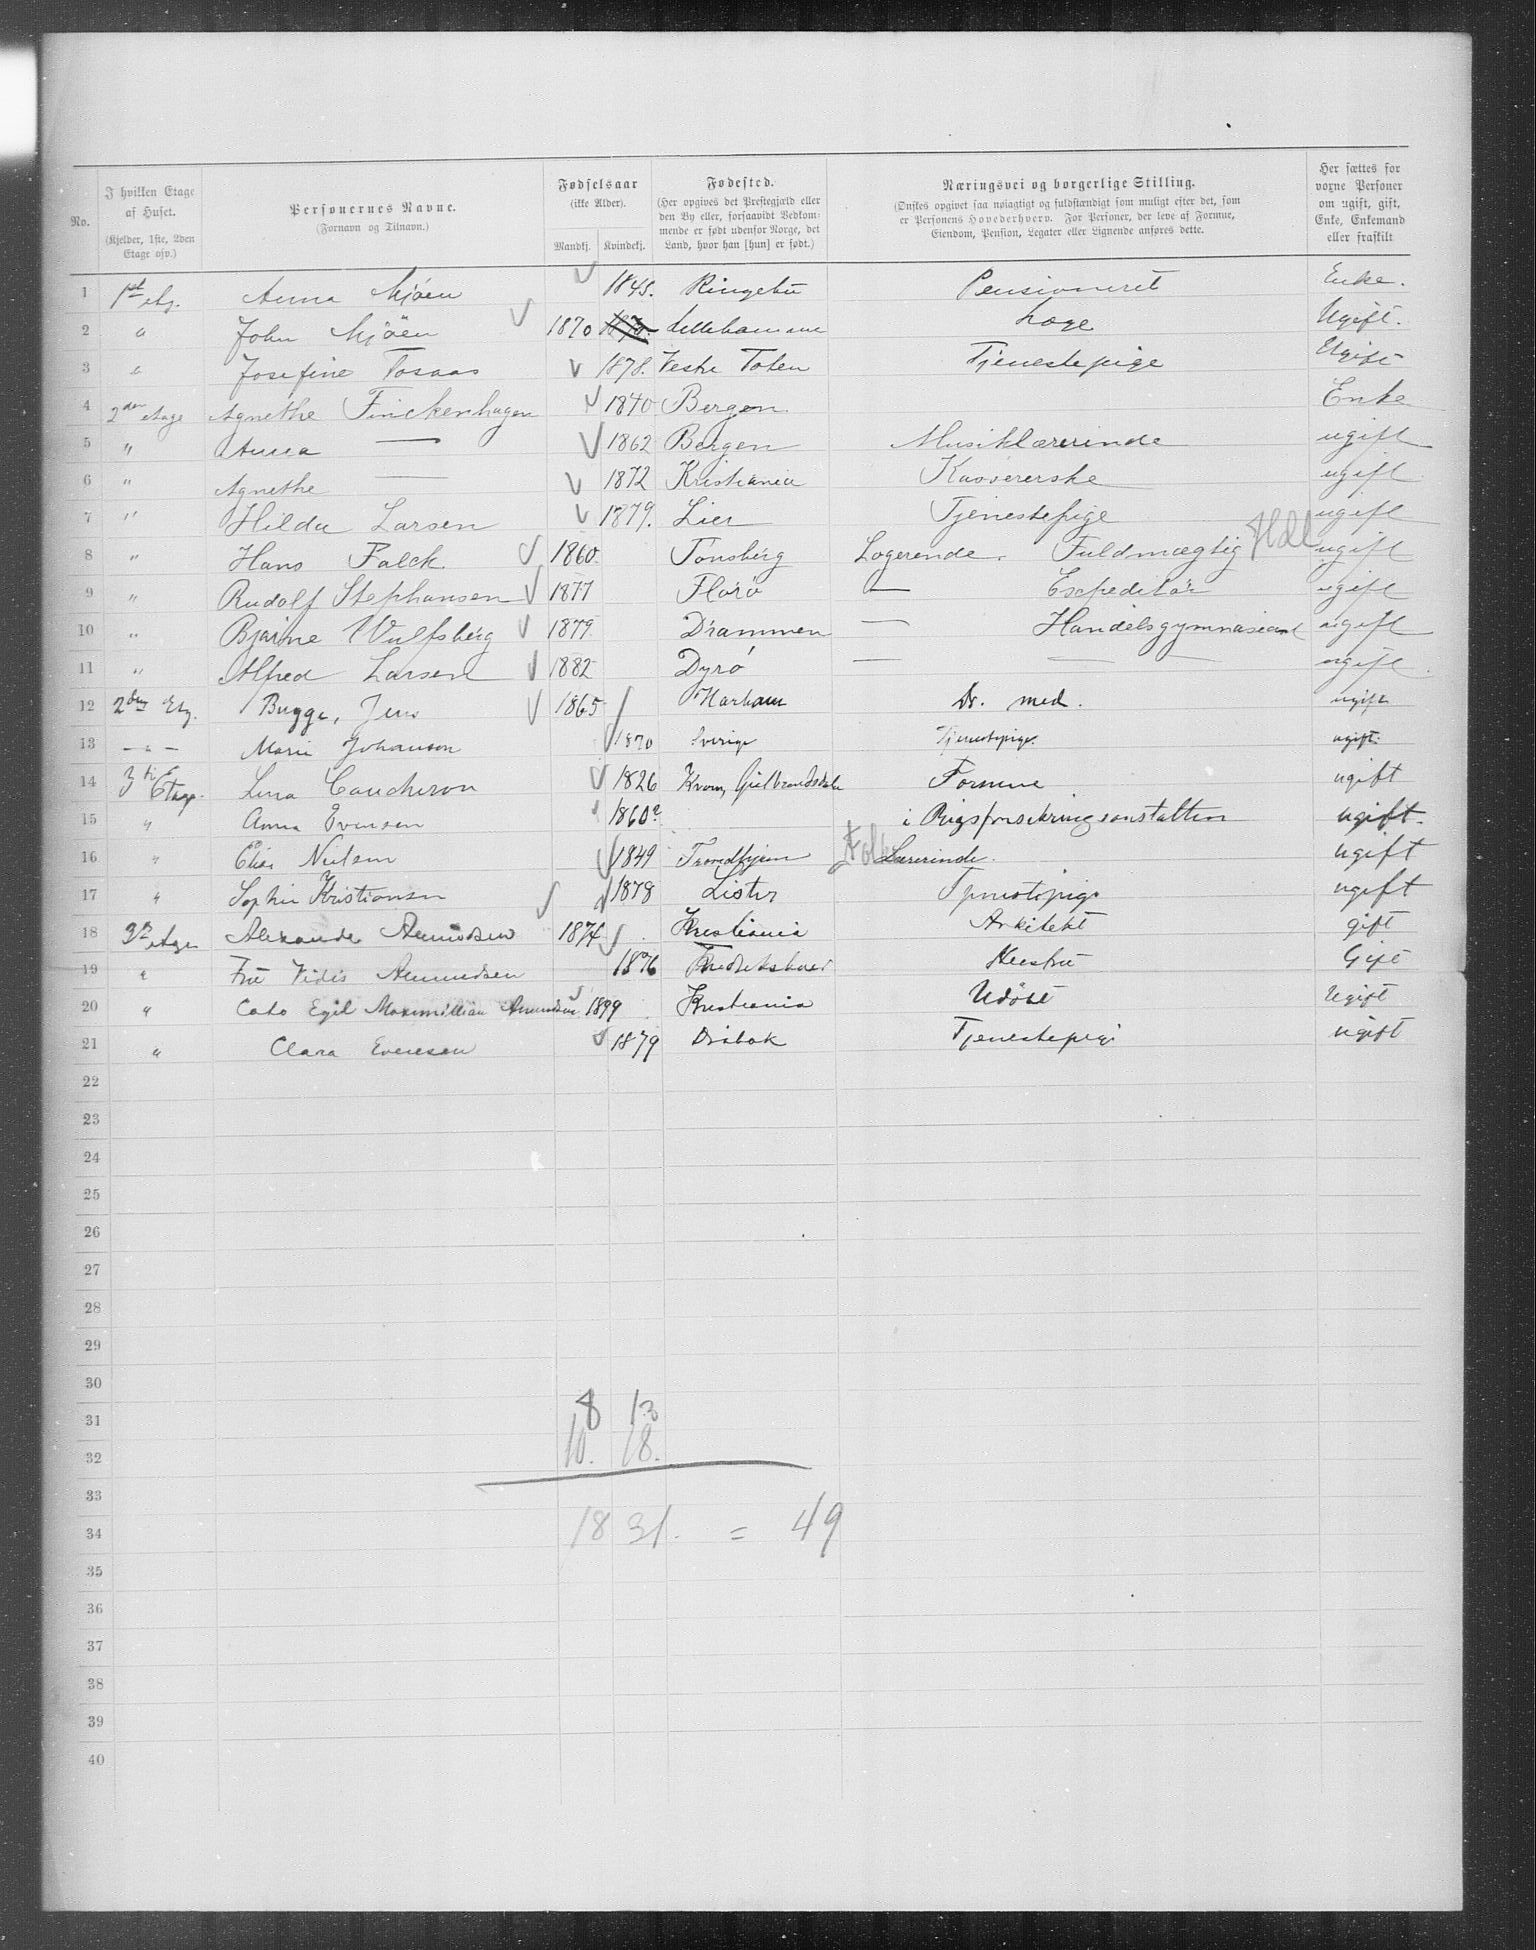 No. I hvilken Etage af Huset. (Kjelder, 1ste, 2den Etage osv.) Personernes Navne. (Fornavn og Tilnavn.) Fødselsaar (ikke Alder). Mandkj. Kvindekj. Fødested. (Her opgives det Prestegjæld eller den By eller, forsaavidt Vedkommende er født udenfor Norge, det Land, hvor han [hun] er født.) Næringsvei og borgerlige Stilling. (Ønskes opgivet saa nøiagtigt og fuldstændigt som muligt efter det, som er Personens Hovederhverv. For Personer, der leve af Formue, Eiendom, Pension, Legater eller Lignende anføres dette.) Her sættes for voxne Personer om ugift, gift, Enke, Enkemand eller fraskilt
1 1st etg. Anna Mjöen 1845. Ringebu Pensioneret Enke.
2 " John Mjöen 1870 1870. Lillehammer Læge Ugift.
3 " Josefine Tosaas 1878. Vestre Toten Tjenestepige Ugift
4 2den etage Agnethe Finckenhagen 1840 Bergen Enke
5 " Anna — 1862 Bergen Musiklærerinde ugift
6 " Agnethe — 1872 Kristiania Kassererske ugift
7 " Hilda Larsen 1879. Lier Tjenestepige ugift
8 " Hans Falck 1860 Tønsberg Logerende. Fuldmægtig Hdl ugift
9 " Rudolf Stephansen 1877 Florø — Expeditør ugift
10 " Bjarne Wulfsberg 1879 Drammen — Handelsgymnasiast ugift
11 " Alfred Larsen 1882 Dyrø — — ugift
12 2den Etg. Bugge, Jens 1865 Harham Dr. med. ugift
13 - " - Marie Johanson 1870 Sverige Tjenestepige. ugift.
14 3die Etage. Lina Caucheron 1826 Kvam, Gudbrandsdalen Formue ugift
15 " Anna Evensen 1860? i Rigsforsikringsanstalten ugift.
16 " Elise Nielsen 1849 Trondhjem Folk Lærerinde. ugift
17 " Sophie Kristiansen 1878 Lister Tjenestepige ugift
18 3die etage Alexander Amundsen 1874 Kristiania Arkitekt gift
19 " Fru Vidis Amundsen 1876 Fredrikshald Husfru Gift
20 " Cato Egil Maximillian Amundsen 1899 Kristiania Udöbt Ugift
21 " Clara Evensen 1879 Dröbak Tjenestepige ugift
22
23
24
25
26
27
28
29
30
31 8 13
32 10. 18.
33
34 18 31. = 49
35
36
37
38
39
40